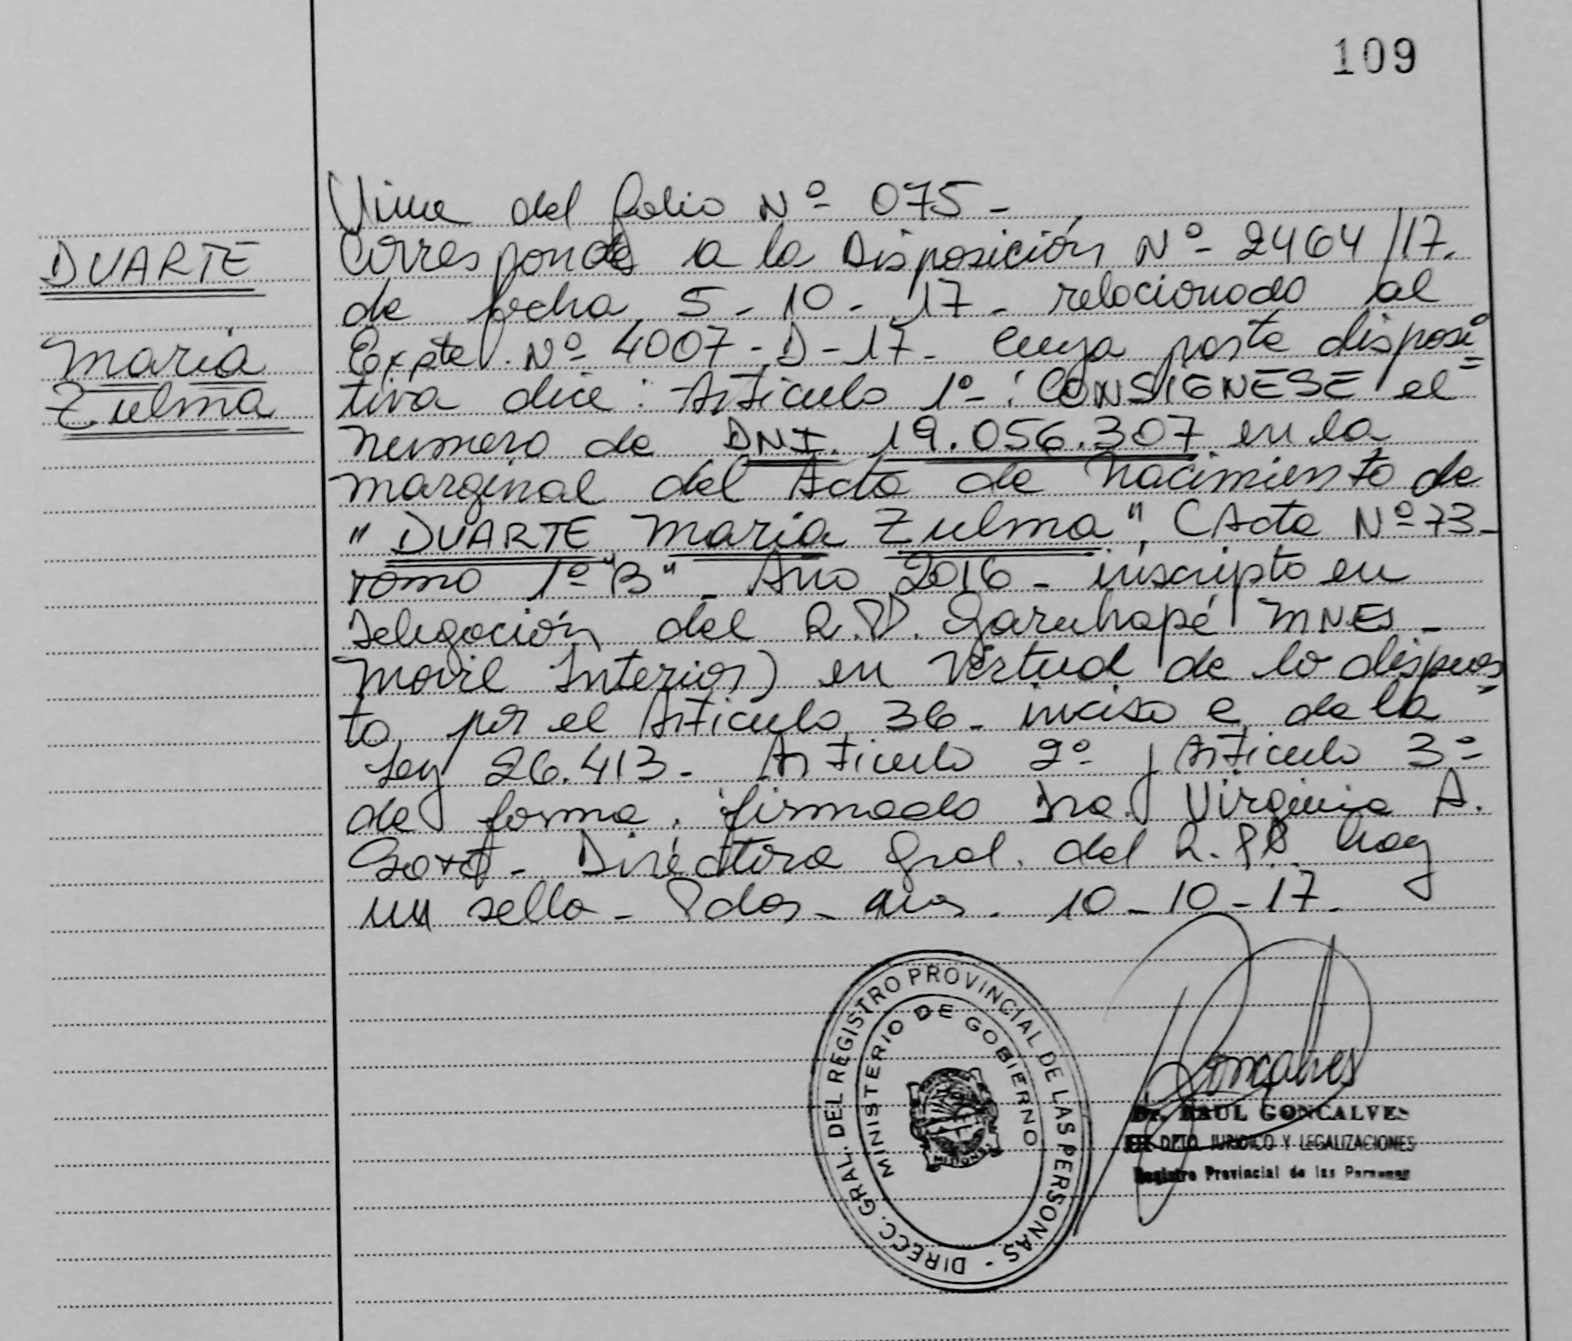 109
DUARTE
Maria
Zulma
Viene del folio Nº 075 -
Corresponde a la Disposición Nº 2464/17.
de fecha 5 - 10 - 17 - relacionado al
Expte. Nº 4007 - D - 17 - cuya parte disposi
tiva dice: Articulo 1º: CONSIGNESE el
numero de DNI. 19.056.307 en la
marginal del Acta de Nacimiento de
"DUARTE Maria Zulma", (Acta Nº 73 -
Tomo 1º "B" - Año 2016 - inscripto en
Delegación del R.P.P. Garuhapé MNES -
Movil Interior) en Virtud de lo dispues
to por el Articulo 36 - inciso e de la
Ley 26.413 - Articulo 2º y Articulo 3º
de forma. firmado Dra. Virginia A.
Directora Gral. del R.P.P. hay
un sello - Pdas - 10 - 10 - 17.
DIRECC. GRAL. DEL REGISTRO PROVINCIAL DE LAS PERSONAS -
MINISTERIO DE GOBIERNO
MISIONES
Goncalves
Dr. RAUL GONCALVES
JEFE DPTO. JURIDICO Y LEGALIZACIONES
Registro Provincial de las Personas